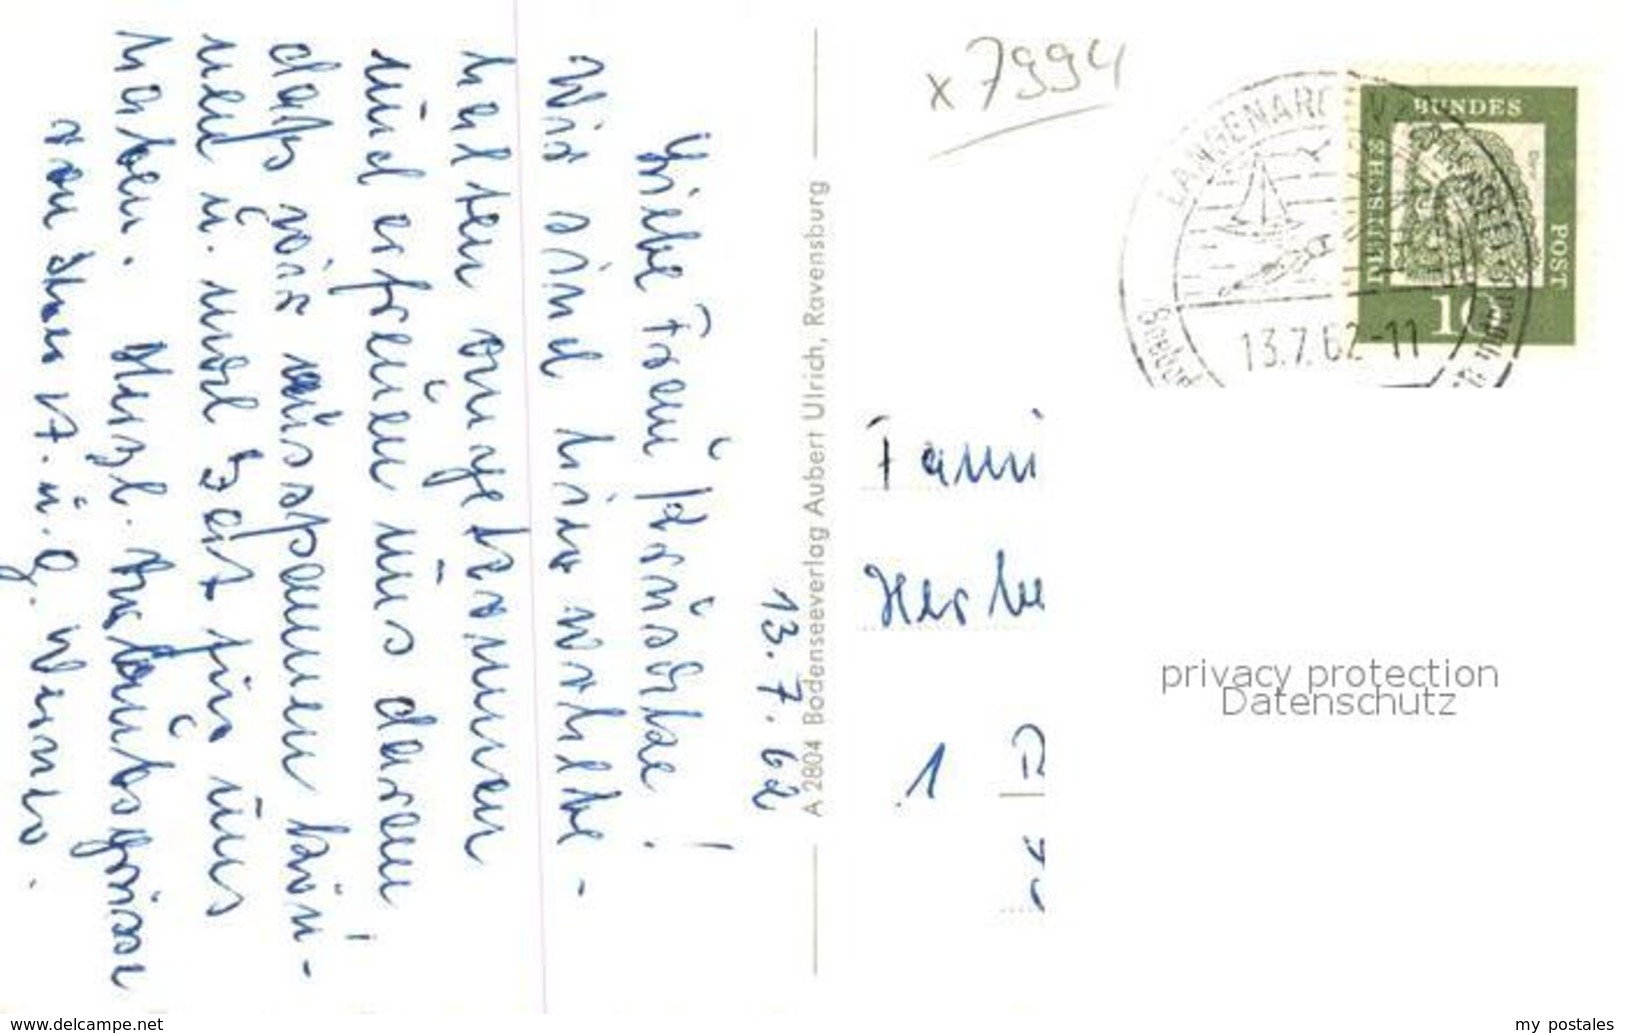 13.7.62
Liebe Frau
Wir sind hier wohlbe-
halten angekommen
und erfreuen uns daran
daß wir ausspannen kön-
nen u. mal Zeit für uns
haben. Herzl. Urlaubsgrüsse
von Ihren
A 2804 Bodenseeverlag Aubert Ulrich, Ravensburg
x 7994
LANGENARGEN
13.7.62-11
DEUTSCHE BUNDES POST
10
Fami
Herbe
1
privacy protection
Datenschutz
www.delcampe.net
my postales